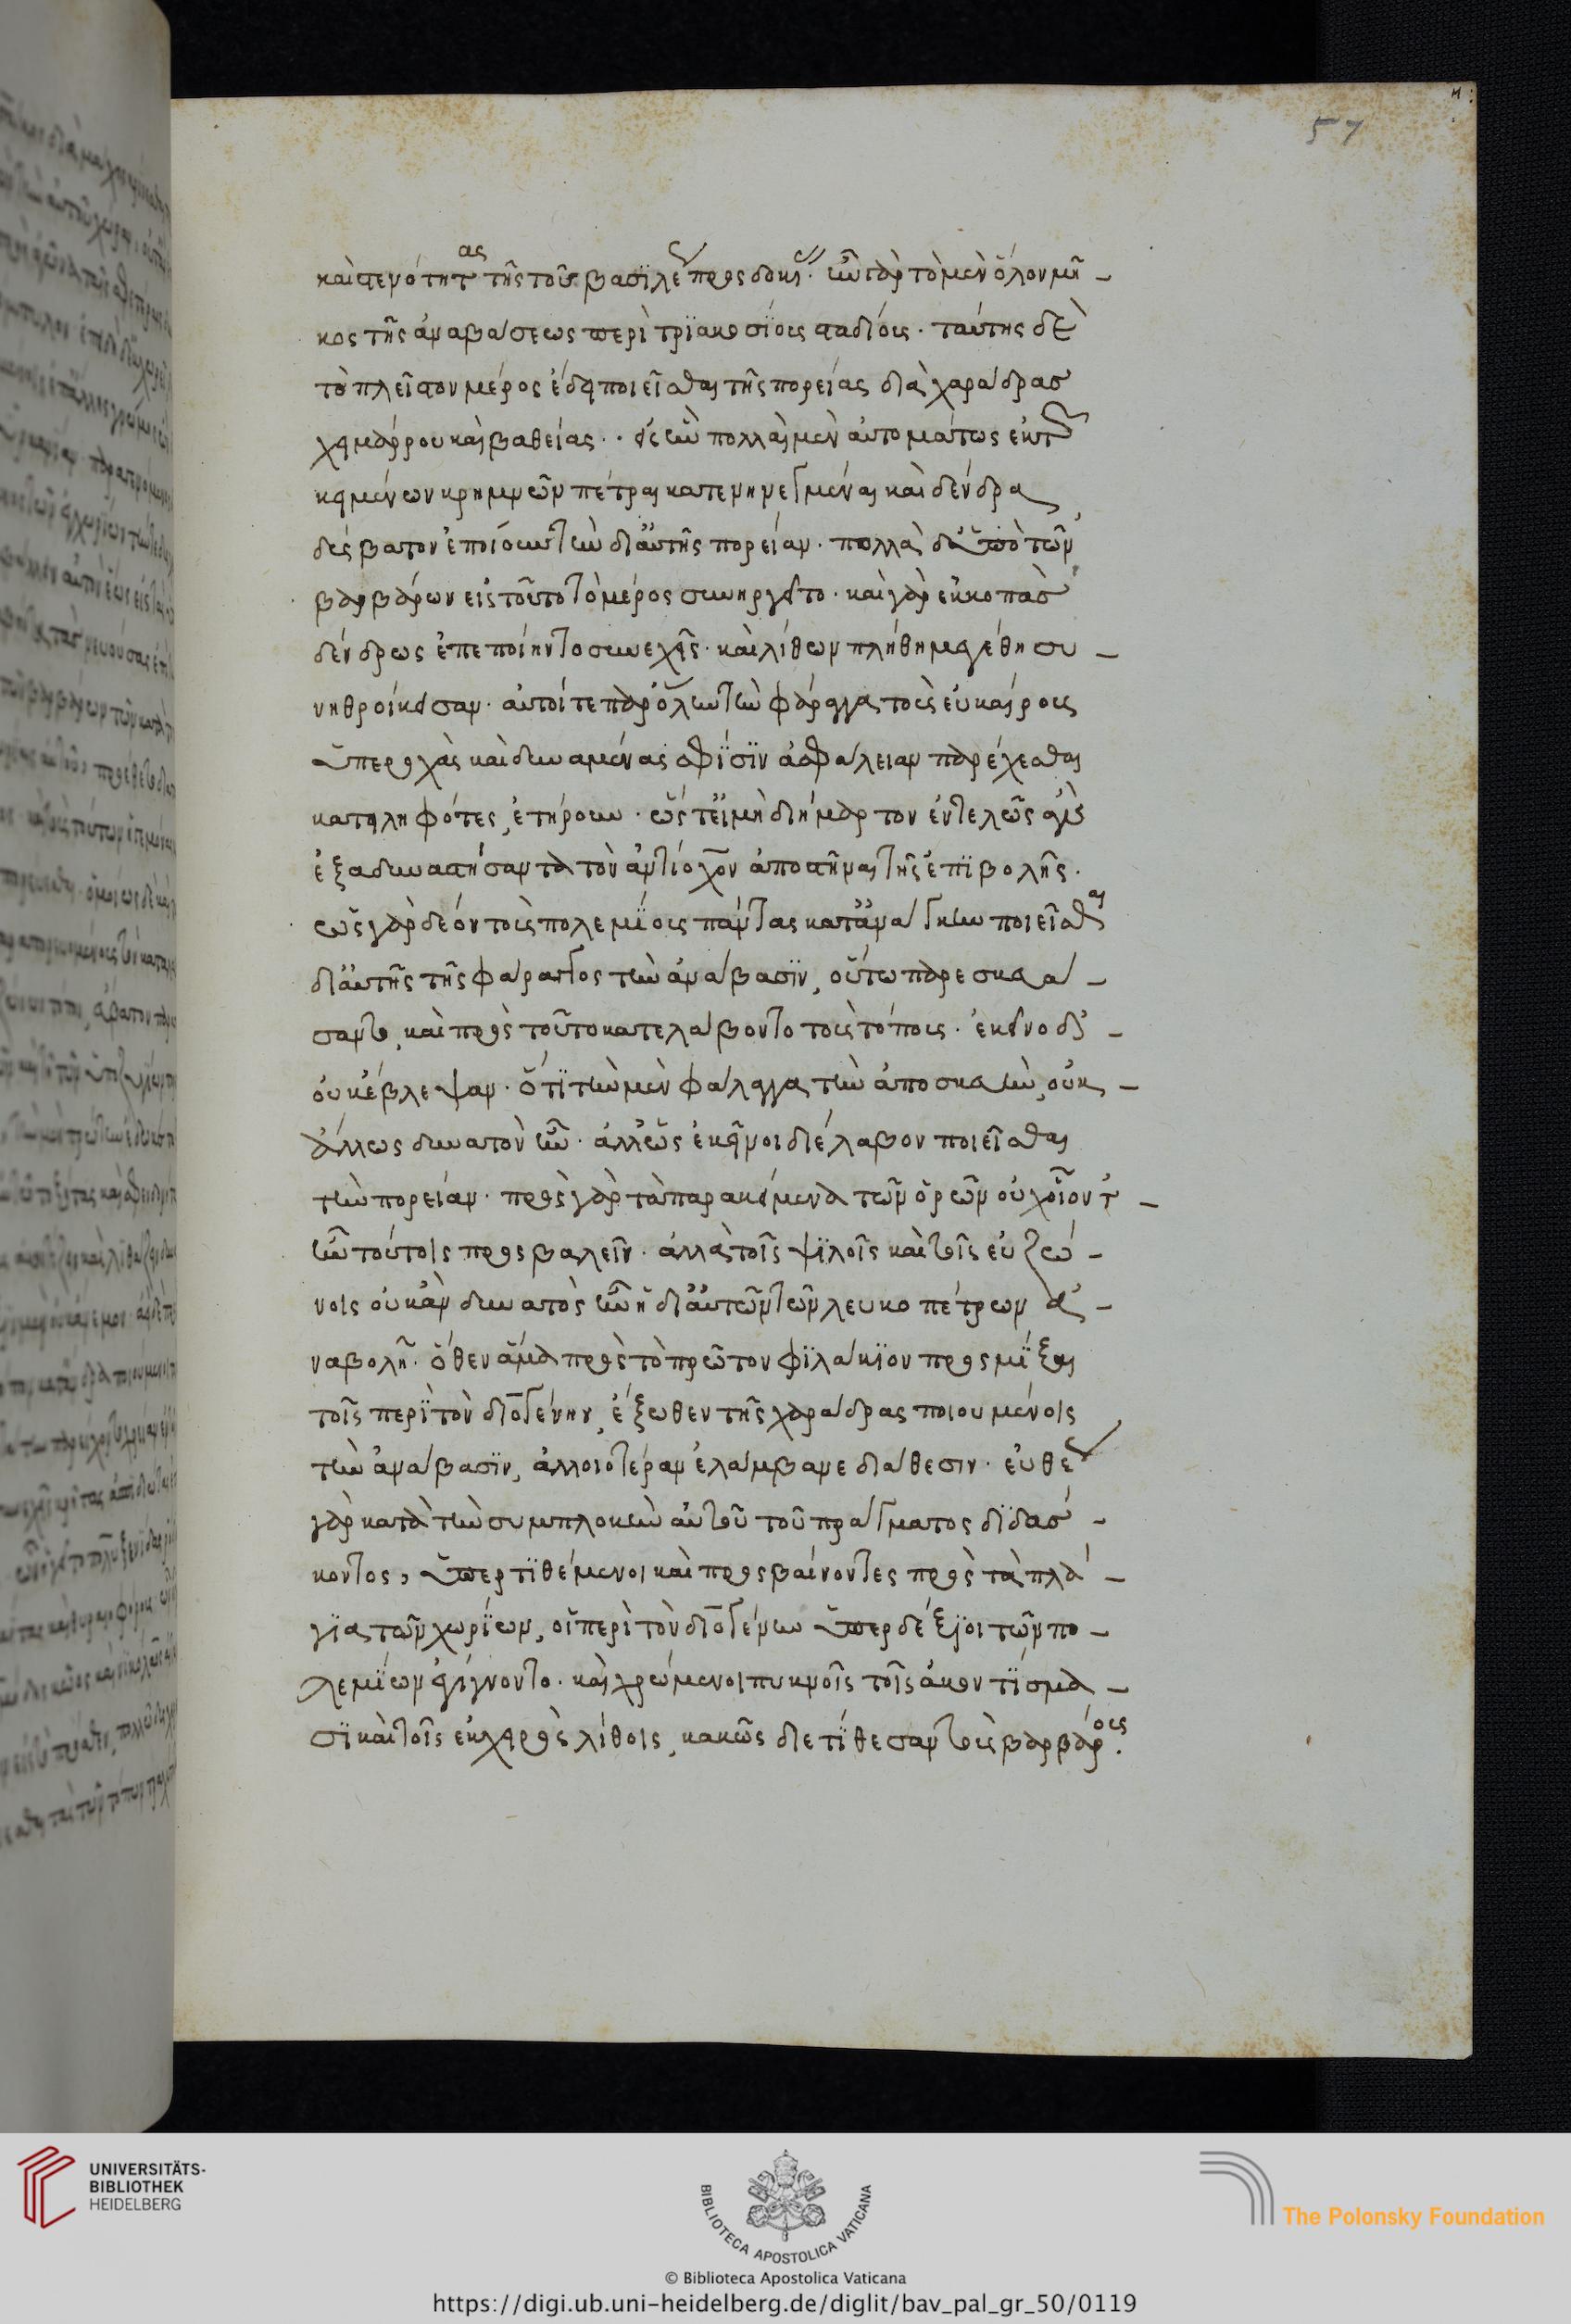 57
καὶ στενότητας τῆς τοῦ βασϊλέως προσδοκίας· ἦν γὰρ τὸ μὲν ὅλον μῆ-
κος τῆς ἀναβάσεως περὶ τρϊακοσϊους σταδίους· ταύτης δὲ
τὸ πλεῖστον μέρος ἔδει ποιεῖσθαι τῆς πορείας διὰ χαράδρας
χειμάρρου καὶ βαθείας·· εἰς ἣν πολλαὶ μὲν αὐτομάτως ἐκ τῶν
κειμένων κρημνῶν πέτραι κατενηνεγμέναι καὶ δένδρα
δύσβατον ἐποίουν τὴν δι᾽ αὐτῆς πορείαν· πολλὰ δ᾽ ὑπὸ τῶν
βαρβάρων εἰς τοῦτο τὸ μέρος συνηργεῖτο· καὶ γὰρ ἐκκοπὰσ
δένδρων ἐπεποίηντο συνεχεῖς· καὶ λίθων πλήθη μεγέθη συ-
νηθροίκεισαν· αὐτοί τε παρ᾽ ὅλην τὴν φάραγγα τοὺς εὐκαίρους
ὑπεροχὰς καὶ δυναμένας σφϊσϊν ἀσφάλειαν παρέχεσθαι
κατειληφότες, ἐτήρουν· ὥς τ᾽ εἰ μὴ διήμαρτον ἐντελῶς ἂν
ἐξαδυνατήσαντα τὸν ἀντίοχον ἀποστῆναι τῆς ἐπϊβολῆς·
ὡς γὰρ δέον τοὺς πολεμϊους πάντας κατ᾽ ἀνάγκην ποιεῖσθαι
δι᾽ αὐτῆς τῆς φάραγγος τὴν ἀνάβασϊν, οὕτω παρεσκευά-
σαντο, καὶ πρὸς τοῦτο κατελάβοντο τοὺς τόπους· ἐκεῖνο δ᾽-
οὐκ ἔβλεψαν· ὅτϊ τὴν μὲν φάλαγγα τὴν ἀποσκευὴν, οὐκ-
ἄλλως δυνατὸν ἦν· ἀλλ᾽ ὡς ἐκεῖνοι διέλαβον ποιεῖσθαι
τὴν πορείαν· πρὸς γὰρ τὰ παρακείμενα τῶν ὀρῶν οὐχ οἷόν τ᾽-
ἦν τούτοις προσβαλεῖν· ἀλλὰ τοῖς ψϊλοῖς καὶ τοῖς εὐζώ-
νοις οὐκ ἀδυνατὸς ἦν ἡ δι᾽ αὐτῶν τῶν λευκοπέτρων ἀ-
ναβολή· ὅθεν ἅμα πρὸς τὸ πρῶτον φϊλάκϊον προσμῖξαι
τοῖς περϊ τὸν διογένην, ἔξωθεν τῆς χαράδρας ποιουμένοις
τὴν ἀνάβασϊν, ἀλλοιοτέραν ἐλάμβανε διάθεσιν· εὐθέως
γὰρ κατὰ τὴν συμπλοκὴν αὐτοῦ τοῦ πράγματος δϊδάσ-
κοντος, ὑπερτϊθέμενοι καὶ προσβαίνοντες πρὸς τὰ πλά-
γϊα τῶν χωρϊων, οἱ περὶ τὸν διογένην ὑπερδέξϊοι τῶν πο-
λεμϊων ἐγίγνοντο· καὶ χρώμενοι πυκνοῖς τοῖς ἀκοντϊσμα-
σϊ καὶ τοῖς ἐκ χειρὸς λίθοις, κακῶς διετίθεσαν τοὺς βαρβάρους·
UNIVERSITÄTS-
BIBLIOTHEK
HEIDELBERG
BIBLIOTECA APOSTOLICA VATICANA
The Polonsky Foundation
© Biblioteca Apostolica Vaticana
https://digi.ub.uni-heidelberg.de/diglit/bav_pal_gr_50/0119